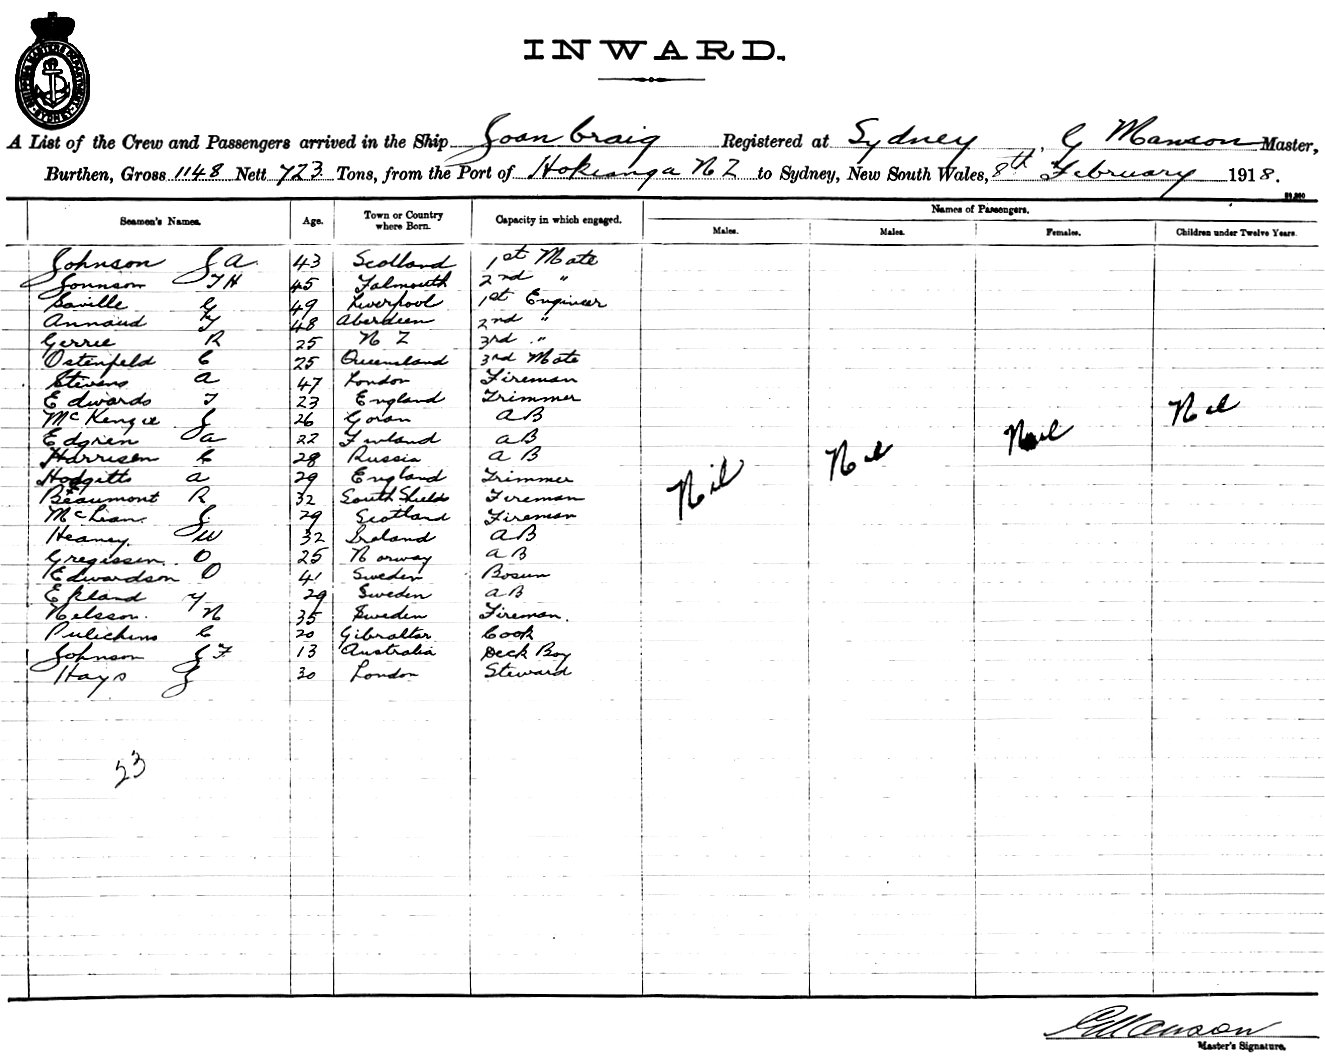 INWARD.
A List of the Crew and Passengers arrived in the Ship Joan Craig Registered at Sydney, G Manson Master,
Burthen, Gross 1148 Nett 723 Tons, from the Port of Hokianga N Z to Sydney, New South Wales, 8th February 1918.
Names of Passengers.
Seamen's Names. Age. Town or Country where Born. Capacity in which engaged. Males. Males. Females. Children under Twelve Years.
Johnson J A 43 Scotland 1st Mate
Johnson T H 45 Falmouth 2nd "
Saville G 49 Liverpool 1st Engineer
Annand 48 Aberdeen 2nd "
Gerrie R 25 N Z 3rd "
Ostenfeld C 25 Queensland 3rd Mate
Stevens A 47 London Fireman
Edwards T 23 England Trimmer
McKenzie J 26 Goran A B
Edgren A 22 Finland A B
Harrison C 28 Russia A B
Hodgetts A 29 England Trimmer
Beaumont R 32 South Shields Fireman
McLean J 29 Scotland Fireman
Heaney W 32 Ireland A B
Gregissen O 25 Norway A B
Edwardson O 41 Sweden Bosun
Ekland Y 29 Sweden A B
Nelsson N 35 Sweden Fireman.
Pulichino C 20 Gibraltar Cook
Johnson J F 13 Australia Deck Boy
Hays J 30 London Steward
Nil Nil Nil Nil
23
G Manson
Master's Signature.